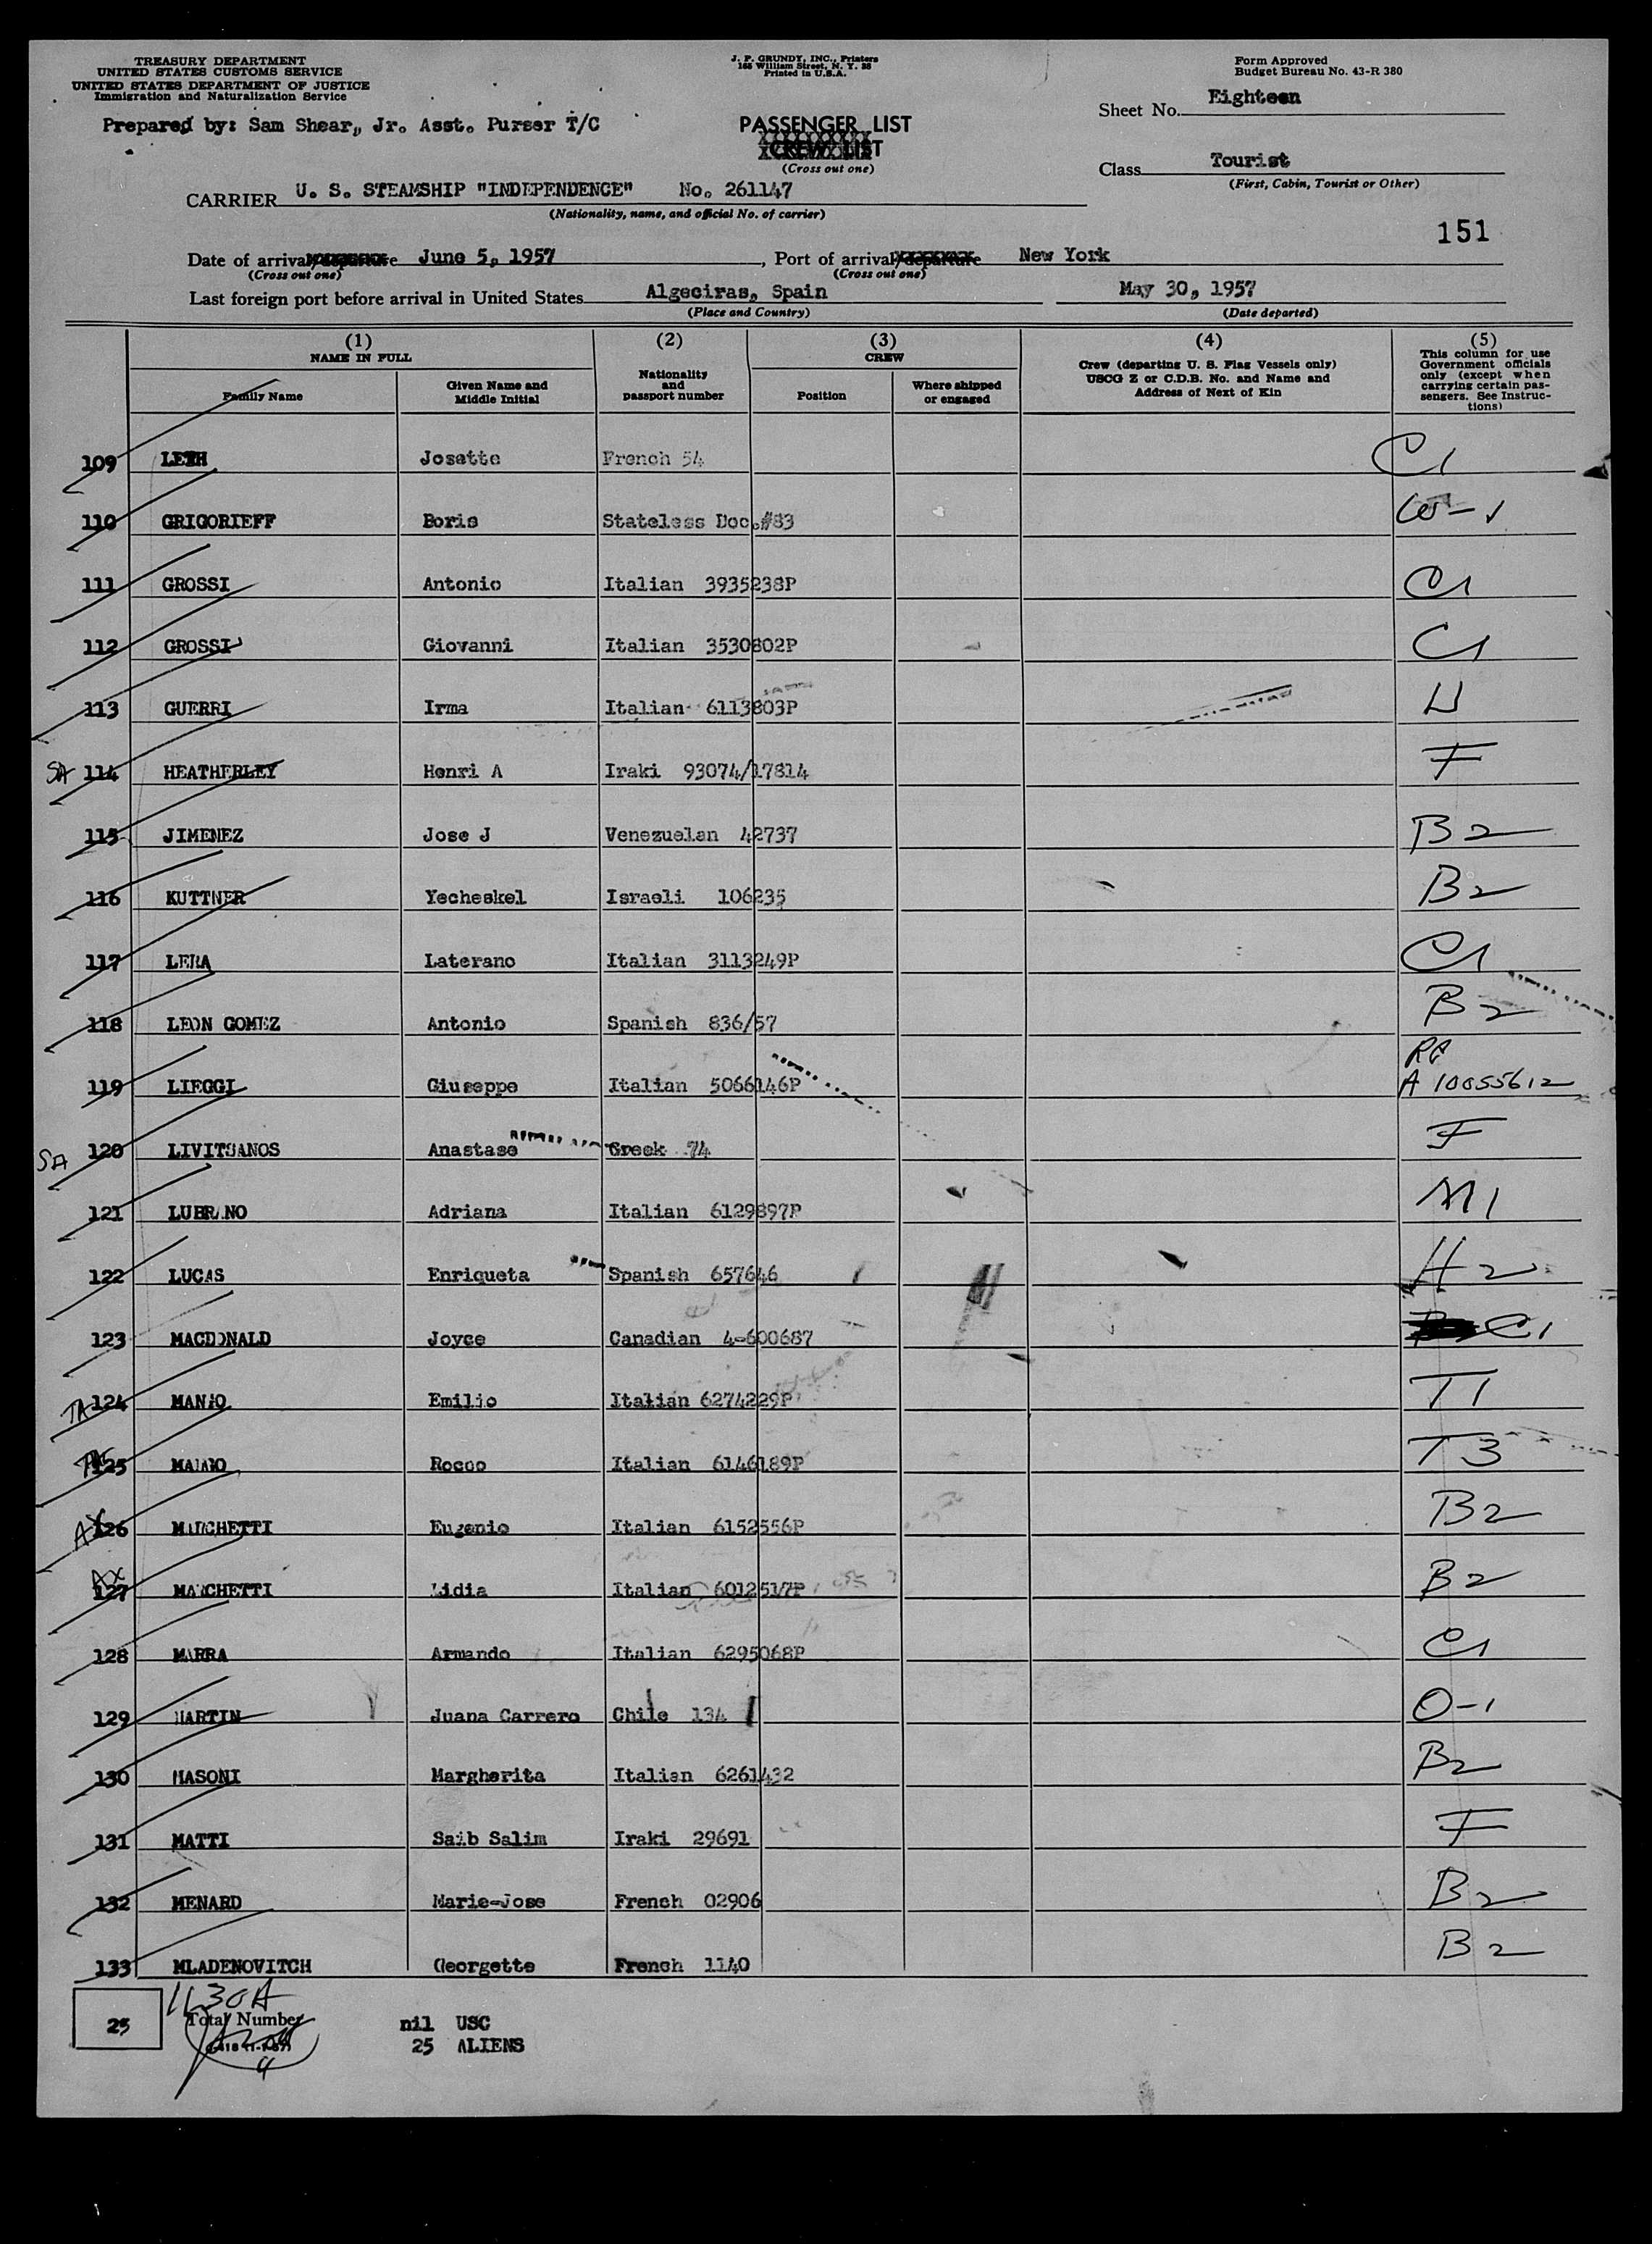 TREASURY DEPARTMENT
UNITED STATES CUSTOMS SERVICE
UNITED STATES DEPARTMENT OF JUSTICE
Immigration and Naturalization Service
J. P. GRUNDY, INC., Printers
165 William Street, N. Y. 38
Printed in U.S.A.
Form Approved
Budget Bureau No. 43-R 380
Sheet No. Eighteen
Prepared by: Sam Shear, Jr. Asst. Purser T/C
PASSENGER LIST
CREW LIST
(Cross out one)
Class Tourist
(First, Cabin, Tourist or Other)
CARRIER U. S. STEAMSHIP "INDEPENDENCE" No. 261147
(Nationality, name, and official No. of carrier)
151
Date of arrival/departure June 5, 1957, Port of arrival/departure New York
(Cross out one) (Cross out one)
Last foreign port before arrival in United States Algeciras, Spain May 30, 1957
(Place and Country) (Date departed)
(1) NAME IN FULL
Family Name
Given Name and Middle Initial
(2) Nationality and passport number
(3) CREW
Position
Where shipped or engaged
(4) Crew (departing U. S. Flag Vessels only) USCG Z or C.D.B. No. and Name and Address of Next of Kin
(5) This column for use Government officials only (except when carrying certain passengers. See Instructions)
109 Josette French 54 C1
110 GRIGORIEFF Boris Stateless Doc.#83
111 GROSSI Antonio Italian 3935238P C1
112 GROSSI Giovanni Italian 3530802P C1
113 GUERRI Irma Italian 6113803P
SA 114 HEATHERLEY Henri A Iraki 93074/17814 F
115 JIMENEZ Jose J Venezuelan 42737 B2
116 KUTTNER Yecheskel Israeli 106235 B2
117 LERA Laterano Italian 3113249P C1
118 LEON GOMEZ Antonio Spanish 836/57 B2
119 LIEGGI Giuseppe Italian 5066146P A 10055612
SA 120 LIVITSANOS Anastase Greek 74 F
121 LUBRANO Adriana Italian 6129897P M1
122 LUCAS Enriqueta Spanish 657646 H2
123 MACDONALD Joyce Canadian 4-600687 C1
TA 124 Emilio Italian 6274229P T1
125 Rocco Italian 6146189P T3
AX 126 MARCHETTI Eugenio Italian 6152556P B2
AX 127 MARCHETTI Lidia Italian 6012517P B2
128 MARRA Armando Italian 6295068P C1
129 MARTIN Juana Carrero Chile 134 O-1
130 MASONI Margherita Italian 6261432 B2
131 MATTI Saib Salim Iraki 29691 F
132 MENARD Marie-Jose French 02906 B2
133 MLADENOVITCH Georgette French 1140 B2
1130A
25 Total Number
nil USC
25 ALIENS